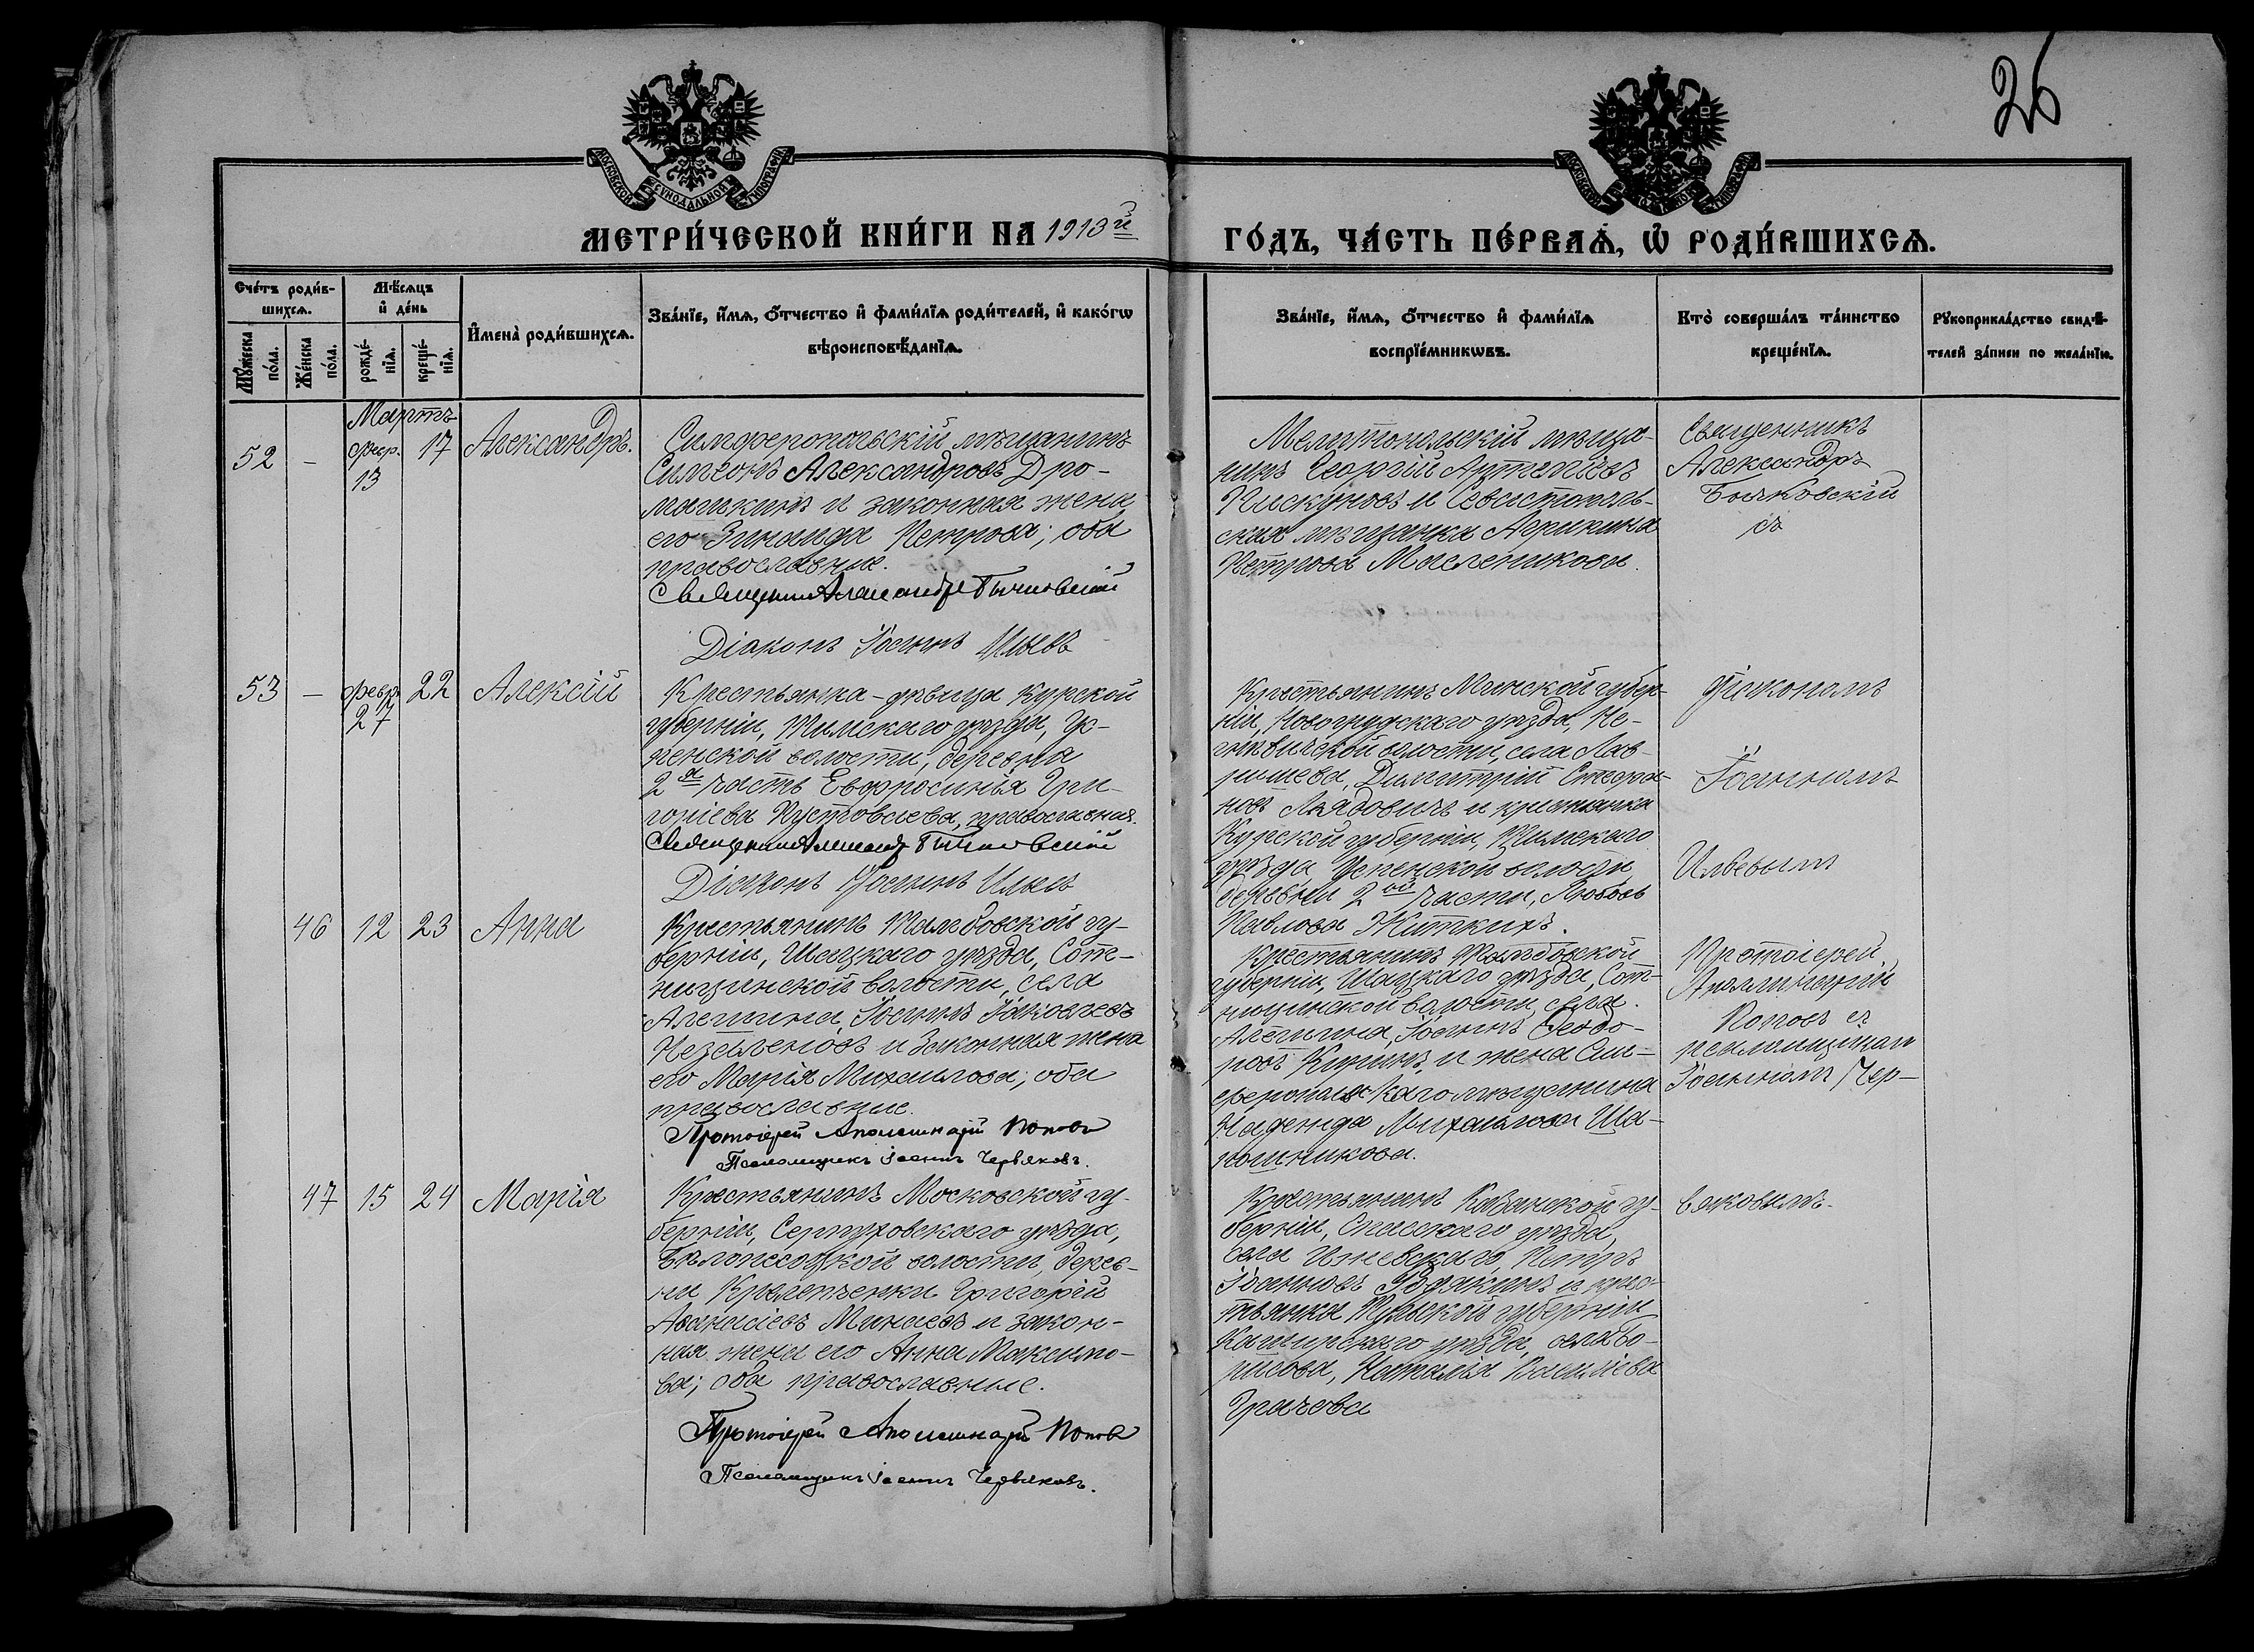 26
МОСКОВСКОЙ СѴНОДАЛЬНОЙ ТИПОГРАФІИ
МЕТРИ́ЧЕСКОЙ КНИ́ГИ НА 1913й
ГО́ДЪ, ЧА́СТЬ ПЕ́РВАѦ, Ѽ РОДИ́ВШИХСѦ.
Сче́тъ роди́в-
шихсѧ.
Мꙋ́жеска по́ла.
Же́нска по́ла.
Мѣ́сѧцъ
и де́нь
рожде́-
нїѧ.
креще́-
нїѧ.
И҆мена̀ роди́вшихсѧ.
Зва́нїе, и҆́мѧ, ѻ҆́тчество и҆ фами́лїѧ роди́телей, и҆ како́гѡ
вѣроисповѣ́данїѧ.
Зва́нїе, и҆́мѧ, ѻ҆́тчество и҆ фами́лїѧ
воспрїе́мникѡвъ.
Кто̀ соверша́лъ та́инство
креще́нїѧ.
Рꙋкоприкла́дство свидѣ́-
телей за́писи по жела́нїю.
Мартъ
52 – февр. 13 17 Александръ.
Симферопольскій мѣщанинъ
Симеонъ Александровъ Дро-
машкинъ и законная жена
его Зинаида Петрова; оба
православные.
Священникъ Александръ
Діаконъ Іоаннъ Ильевъ
Мелитопольскій мѣща-
нинъ Георгій Артеміевъ
Пискуновъ и Севастополь-
ская мѣщанка Агрипина
Петрова Масленикова.
Священникъ
Александръ
съ
53 – февр. 27 22 Алексій
Крестьянка-дѣвица Курской
губерніи, Тимскаго уѣзда, Ус-
пенской волости, деревня
2я часть Евфросинья Гри-
горіева Пустовалова, православная.
Священникъ Александръ
Діаконъ Іоаннъ Ильевъ
Крестьянинъ Минской губер-
ніи, Новогрудскаго уѣзда, Не-
гневичской волости, села Лав-
ришева, Димитрій Стефа-
новъ Лядовичъ и крестьянка
Курской губерніи, Тимскаго
уѣзда, Успенской волости,
деревни 2ой части, Любовь
Павлова Житкихъ.
Діакономъ
Іоанномъ
Ильевымъ
46 12 23 Анна
Крестьянинъ Тамбовской гу-
берніи, Шацкаго уѣзда, Сот-
ницинской волости, села
Алешина, Іоаннъ Іаковлевъ
Незеленовъ и законная жена
его Марія Михаилова; оба
православные.
Протоіерей Аполлинарій Поповъ
Псаломщикъ Іоаннъ Червяковъ.
Крестьянинъ Тамбовской
губерніи, Шацкаго уѣзда, Сот-
ницинской волости, села
Алешина, Іоаннъ Ѳеодо-
ровъ и жена Сим-
феропольскаго мѣщанина
Надежда Михаилова Ша-
пошникова.
Протоіерей
Аполлинарій
Поповъ съ
псаломщикомъ
Іоанномъ Чер-
47 15 24 Марія
Крестьянинъ Московской гу-
берніи, Серпуховскаго уѣзда,
Бѣлопесоцкой волости, дерев-
ни Григорій
Аѳанасіевъ Минаевъ и закон-
ная жена его Анна Максимо-
ва; оба православные.
Протоіерей Аполлинарій Поповъ
Псаломщикъ Іоаннъ Червяковъ.
Крестьянинъ Казанской гу-
берніи, Спасскаго уѣзда,
села Петръ
Іоанновъ и крес-
тьянка Тульской губерніи
Каширскаго уѣзда, села Бо-
рисова, Наталія Василіева
Грачова
вяковымъ.